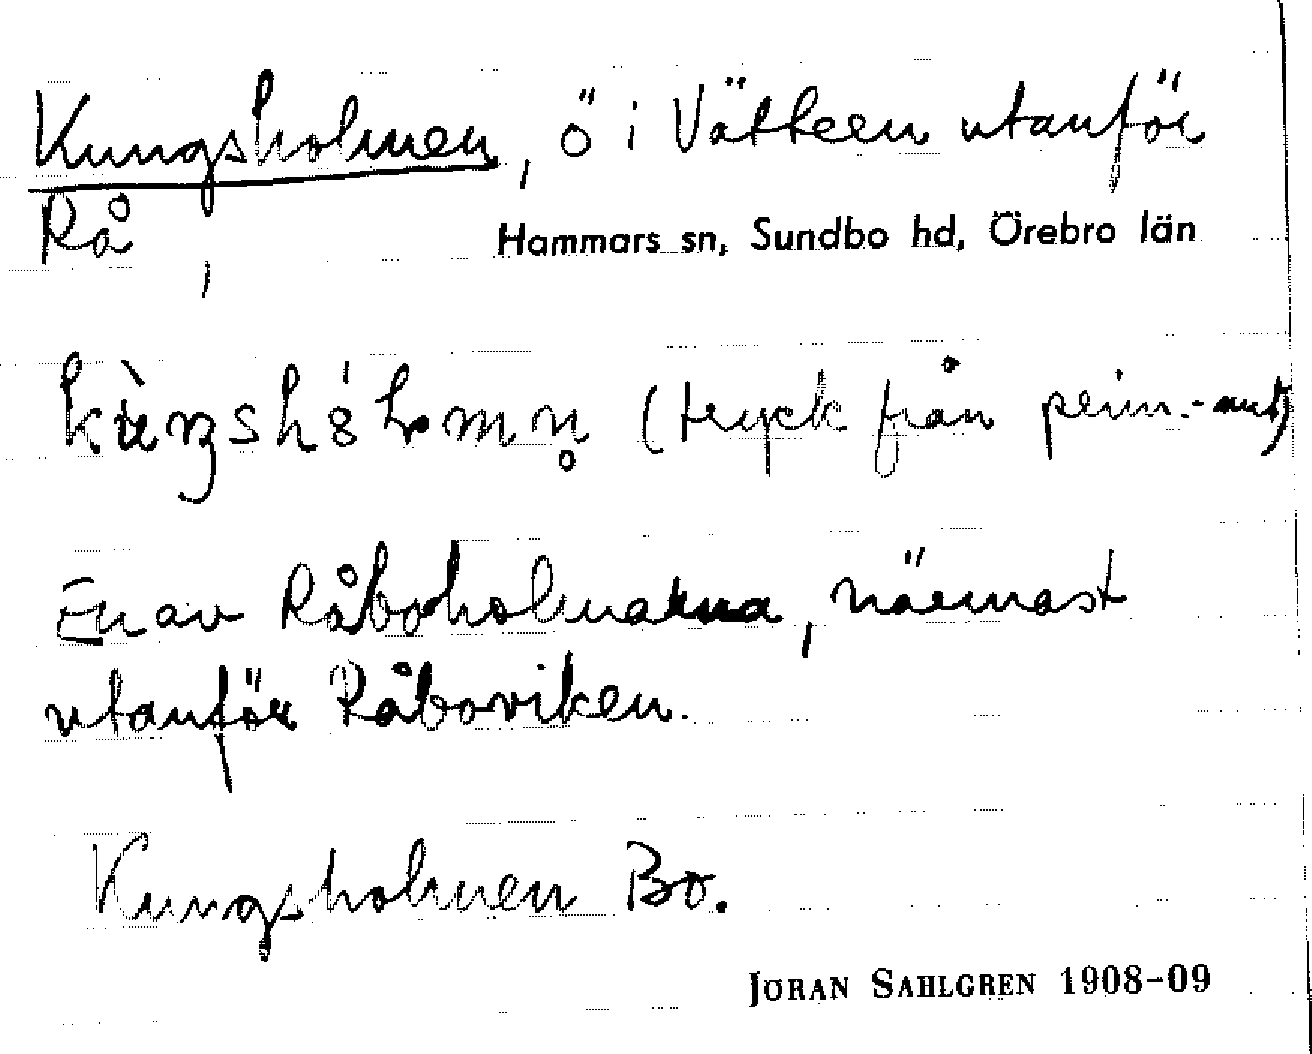 Kungsholmen, ö i Vättern utanför
Rå,
Hammars sn, Sundbo hd, Örebro län
(tryck från
En av Råboholmarna, närmast
utanför Råboviken.
Kungsholmen Bo.
JÖRAN SAHLGREN 1908-09